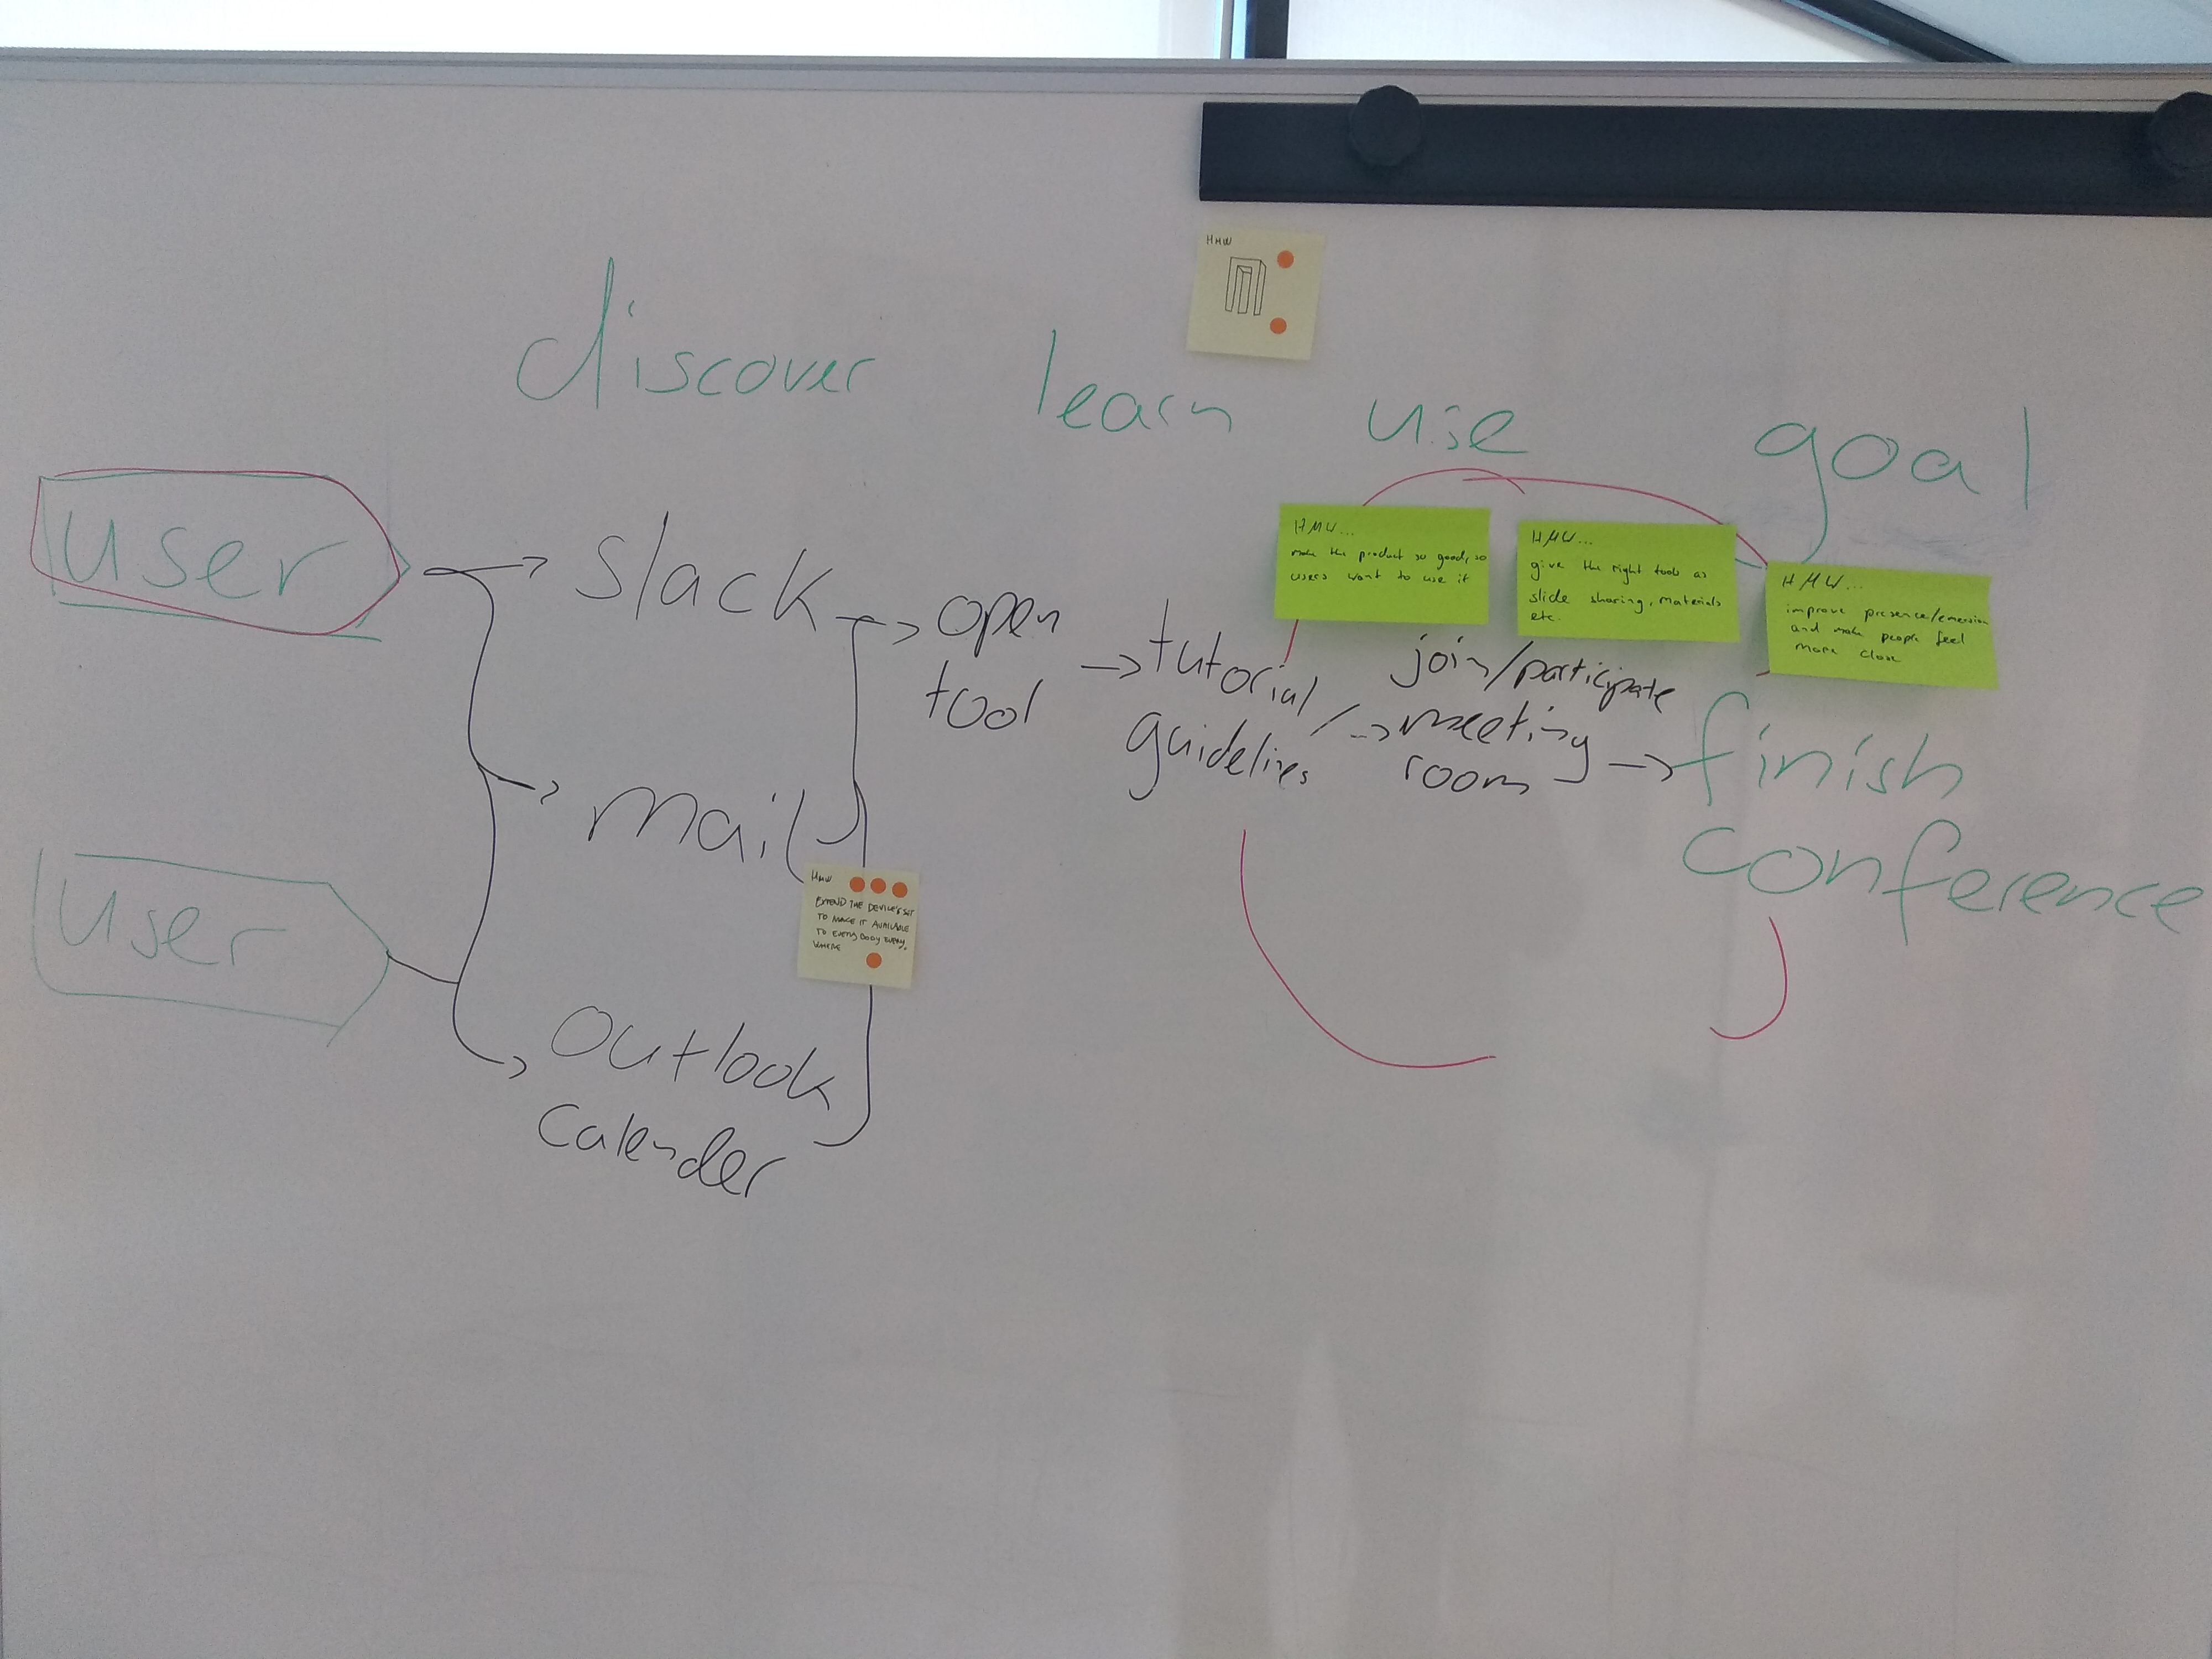 HMW
discover learn use goal
user
slack
open
tool
tutorial /
guidelines
HMW...
make the product so good, so
users want to use it
HMW...
give the right tools as
slide sharing, materials
etc.
HMW...
improve presence/emersion
and make people feel
more close
join/participate
meeting
room
finish
conference
mail
HMW
EXTEND THE DEVICE'S SET
TO MAKE IT AVAILABLE
TO EVERYBODY EVERY
WHERE
user
outlook
calender